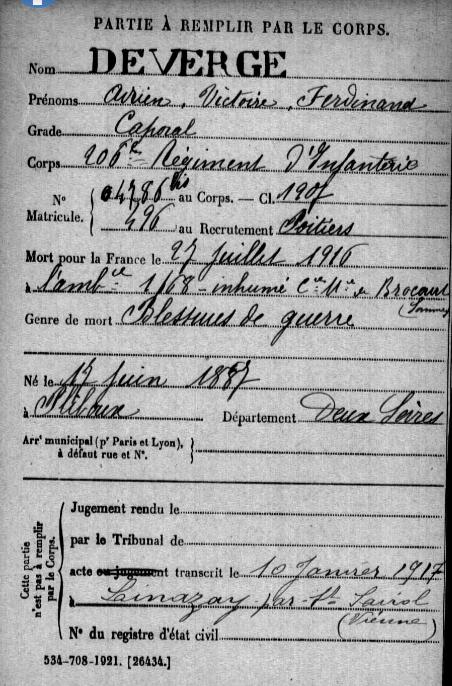 PARTIE À REMPLIR PAR LE CORPS.
Nom DEVERGE
Prénoms Adrien, Victoire, Ferdinand
Grade Caporal
Corps 206e Régiment D'Infanterie
N° Matricule. 04786 bis au Corps. — Cl. 1907
496 au Recrutement Poitiers
Mort pour la France le 27 juillet 1916
à l'ambce 1/68 - inhumé Cre Mre de Brocourt
(Somme)
Genre de mort Blessures de guerre
Né le juin 1887
à Pliboux Département Deux Sèvres
Arrt municipal (pr Paris et Lyon),
à défaut rue et N°.
Cette partie n'est pas à remplir par le Corps.
Jugement rendu le
par le Tribunal de
acte ou jugement transcrit le 10 Janvier 1917
à Linazay par St Saviol
(Vienne)
N° du registre d'état civil
534-708-1921. [26434.]